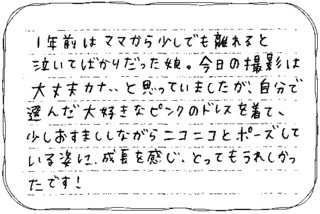 1年前はママから少しでも離れると
泣いてばかりだった娘。今日の撮影は
大丈夫カナ、、と思っていましたが、自分で
選んだ大好きなピンクのドレスを着て、
少しおすましながらニコニコとポーズして
いる姿に、成長を感じ、とってもうれしかっ
たです!